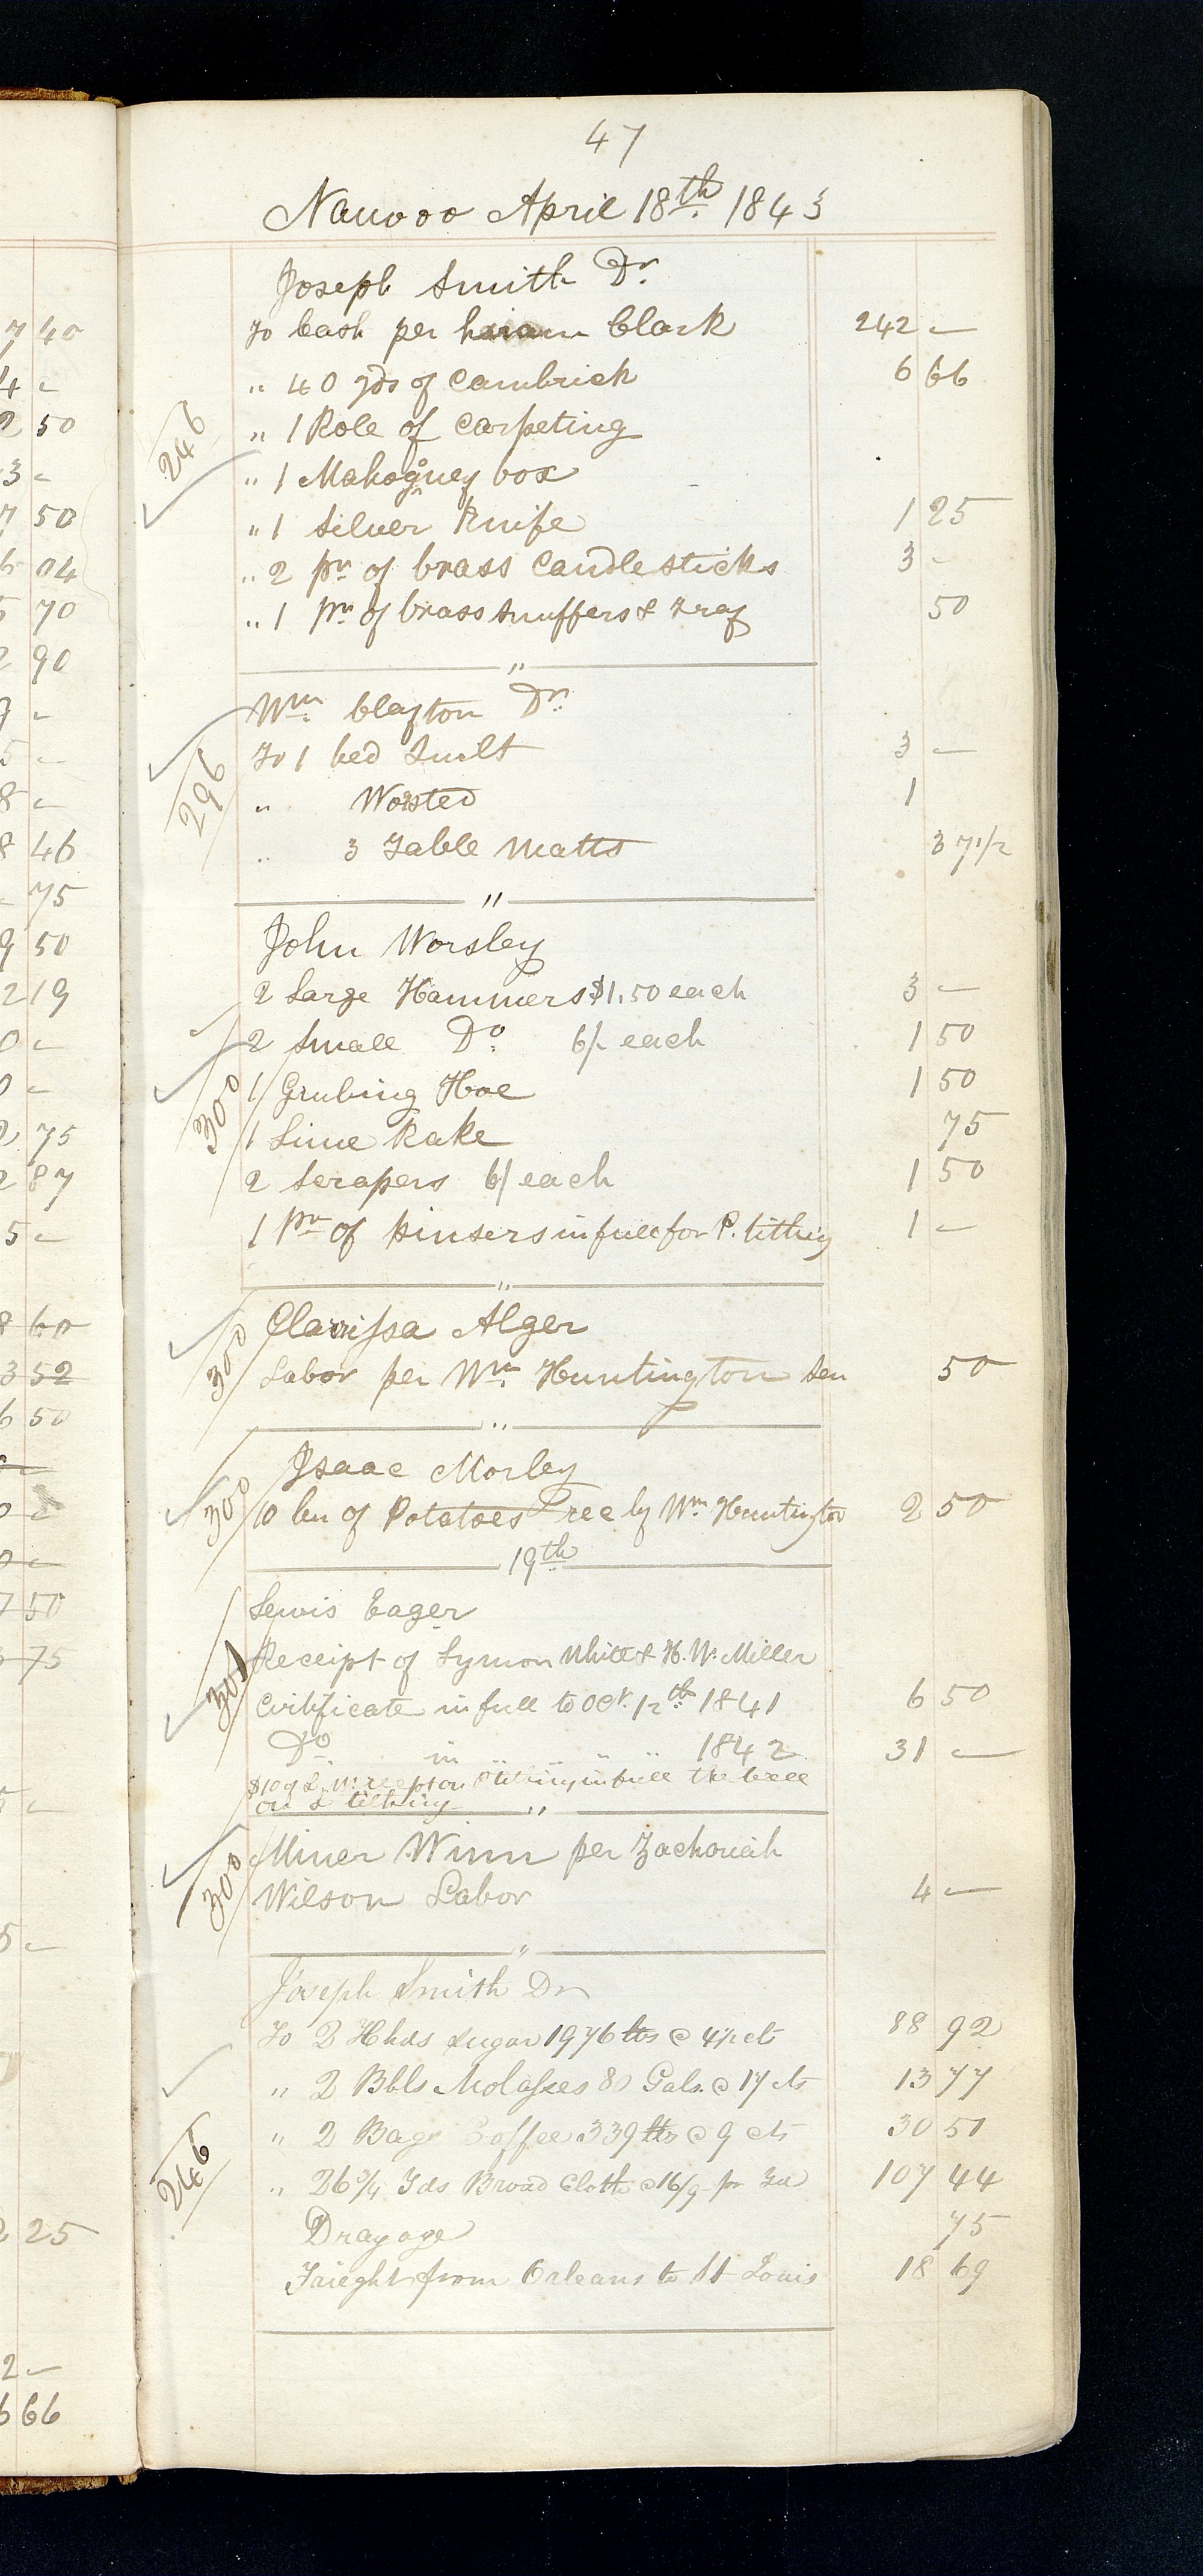 47
Nauvoo April 18th 1843
Joseph Smith Dr.
To Cash per hiram Clark 242 -
" 40 yds of Cambrick 6 66
246 " 1 Role of Carpeting
" 1 Mahogney box
" 1 Silver Knife 1 25
" 2 pr of brass Candlesticks 3 -
" 1 pr of brass Snuffers & Tray 50
"
Wm Clayton Dr.
To 1 bed Quilt 3 -
296 " Worsted 1
" 3 Table Matts 37 1/2
"
John Worsley
2 Large Hammers $1.50 each 3 -
2 Small Do. 6/ each 1 50
1 Grubing Hoe 1 50
300 1 Lime Rake 75
2 Scrapers 6/ each 1 50
1 Pr of Pinsers in full for P. tithing 1 -
"
Clarrissa Alger
300 Labor per Wm Huntington Sen 50
"
Isaac Morley
300 10 bu of Potatoes rec by Wm Huntington 2 50
19th
Lewis Eager
Receipt of Lymon White & H. W. Miller
301 Certificate in full to Oct. 12th 1841 6 50
Do. in " " " " 1842 31 -
on tithing in full the
on tithing "
Miner Winn per Zachoriah
300 Wilson Labor 4 -
"
Joseph Smith Dr
To 2 Hhds Sugar 1976 lbs @ 4 1/2 cts 88 92
" 2 Bbls Molasses 81 Gals. @ 17 cts 13 77
" 2 Bags Coffee 339 lbs @ 9 cts 30 51
246 " 26 3/4 Yds Broad Cloth @ 16/9 pr Yd 107 44
Drayage 75
Frieght from Orleans to St Louis 18 69
7 40
4 -
2 50
3 -
7 50
04
70
90
46
75
9 50
2 19
2 75
2 87
5 -
60
3 52
6 50
7 50
75
5 -
2 25
2 -
6 66